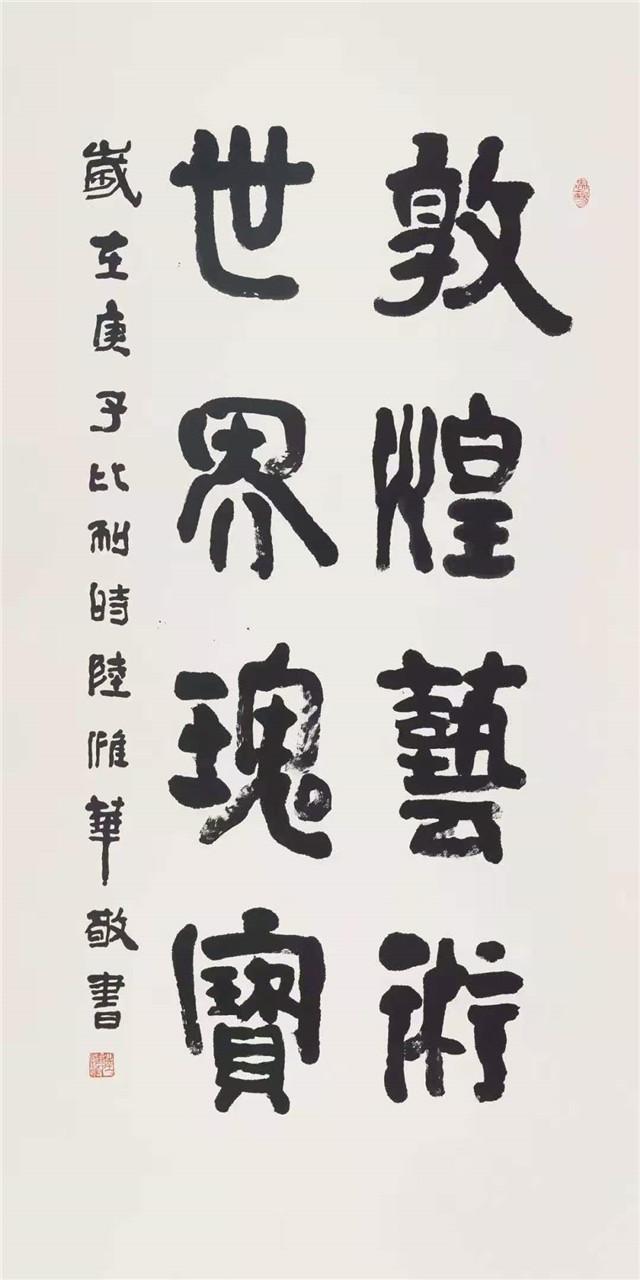 敦煌藝術
世界瑰寶
歲在庚子比利時陸惟華敬書